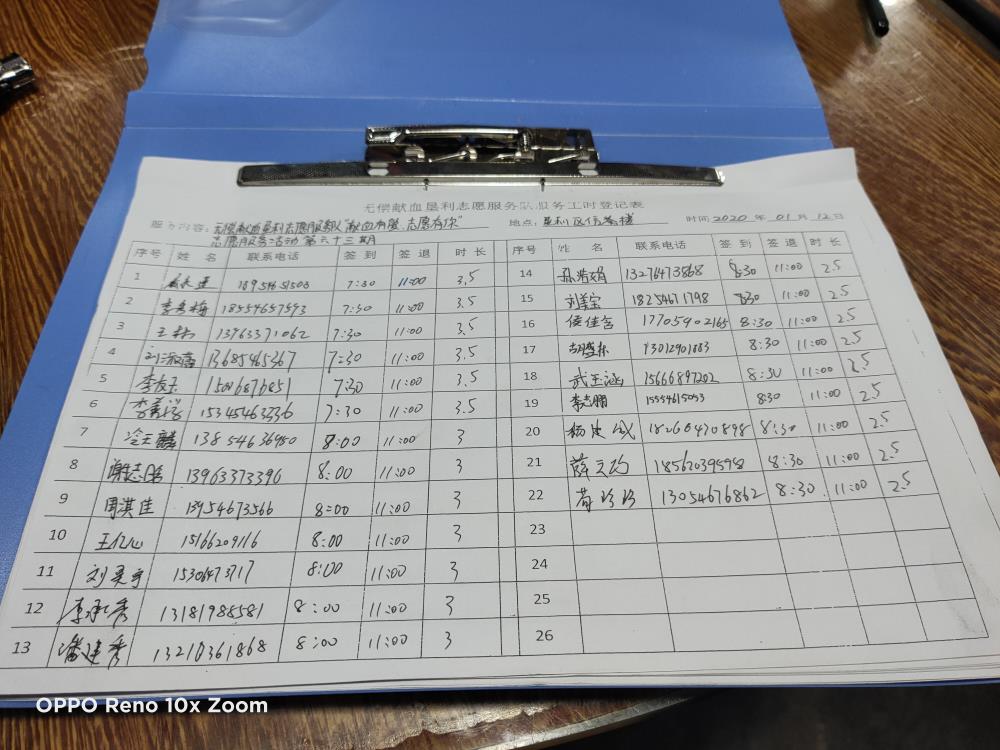 无偿献血垦利志愿服务队服务工时登记表
服务内容：无偿献血垦利志愿服务队"献血有爱，志愿有你" 地点：垦利区信誉楼 时间 2020 年 01 月 12 日
志愿服务活动第六十三期
序号 姓 名 联系电话 签 到 签 退 时 长 序号 姓 名 联系电话 签 到 签 退 时 长
1 7:30 11:00 3.5 14 13276473868 8:30 11:00 2.5
2 李秀梅 18554657593 7:30 11:00 3.5 15 刘美宝 18254671798 8:30 11:00 2.5
3 王 13963371062 7:30 11:00 3.5 16 侯佳含 17705902165 8:30 11:00 2.5
4 刘淑 13685465367 7:30 11:00 3.5 17 胡 8:30 11:00 2.5
5 李友 7:30 11:00 3.5 18 武玉涵 15666897202 8:30 11:00 2.5
6 李 15345463336 7:30 11:00 3.5 19 李志鹏 8:30 11:00 2.5
7 玉麟 13854636950 8:00 11:00 3 20 杨 18266470898 8:30 11:00 2.5
8 谢志 13963373396 8:00 11:00 3 21 薛 8:30 11:00 2.5
9 周淇佳 13954673566 8:00 11:00 3 22 13054676862 8:30 11:00 2.5
10 王 15166209116 8:00 11:00 3 23
11 刘 8:00 11:00 3 24
12 李 秀 13181988581 8:00 11:00 3 25
13 潘建秀 13210361868 8:00 11:00 3 26
OPPO Reno 10x Zoom